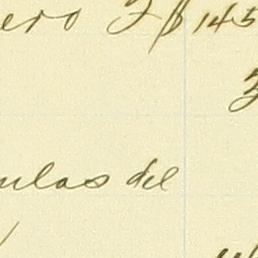 ero 2 $ 145
3
ulas del